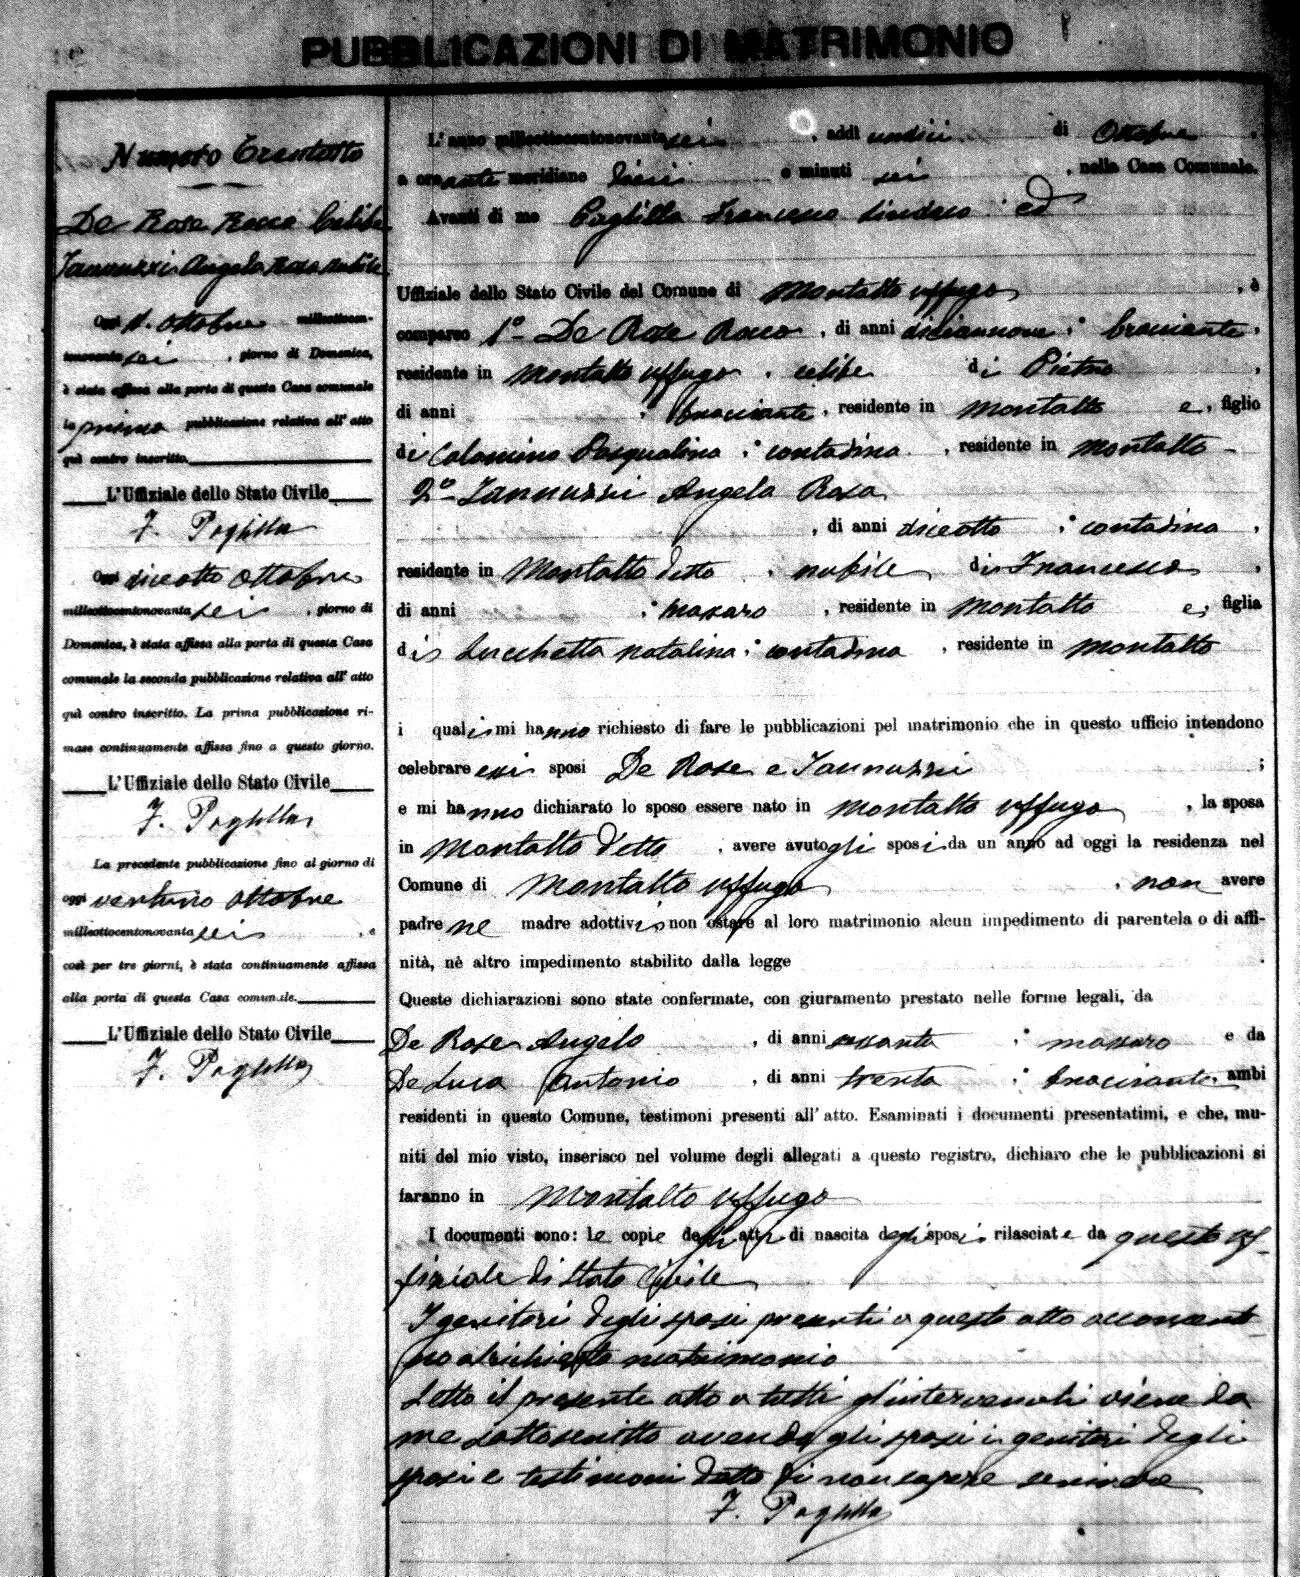 PUBBLICAZIONI DI MATRIMONIO
Numero Trentotto
De Rose Rocco Celibe
Iannuzzi Angela Rosa nubile
Oggi 11. Ottobre millottocen-
tonovanta sei, giorno di Domenica,
è stata affissa alla porta di questa Casa comunale
la prima pubblicazione relativa all' atto
quì contro inscritto.
L'Uffiziale dello Stato Civile
F. Poglilla
Oggi diceotto Ottobre
millottocentonovanta sei, giorno di
Domenica, è stata affissa alla porta di questa Casa
comunale la seconda pubblicazione relativa all' atto
quì contro inscritto. La prima pubblicazione ri-
mase continuamente affissa fino a questo giorno.
L'Uffiziale dello Stato Civile
F. Poglilla
La precedente pubblicazione fino al giorno di
oggi ventuno Ottobre
millottocentonovanta sei, e
così per tre giorni, è stata continuamente affissa
alla porta di questa Casa comunale.
L'Uffiziale dello Stato Civile
F. Poglilla
L'anno milleottocentonovanta sei, addì undici di Ottobre,
a ore ante meridiane dieci e minuti sei, nella Casa Comunale.
Avanti di me Poglilla Francesco Sindaco ed
Uffiziale dello Stato Civile del Comune di Montalto Uffugo, è
comparso 1º De Rose Rocco, di anni diciannove, bracciante,
residente in Montalto Uffugo, celibe di Pietro,
di anni , bracciante, residente in Montalto e, figlio
di Colomino Pasqualina, contadina, residente in Montalto
2º Iannuzzi Angela Rosa
, di anni diceotto, contadina,
residente in Montalto detto, nubile di Francesco,
di anni , massaro, residente in Montalto e, figlia
di Lucchetta Natalina, contadina, residente in Montalto
i quali mi hanno richiesto di fare le pubblicazioni pel matrimonio che in questo ufficio intendono
celebrare essi sposi De Rose e Iannuzzi ;
e mi hanno dichiarato lo sposo essere nato in Montalto Uffugo, la sposa
in Montalto detto, avere avuto gli sposi da un anno ad oggi la residenza nel
Comune di Montalto Uffugo, non avere
padre ne madre adottivi non ostare al loro matrimonio alcun impedimento di parentela o di affi-
nità, nè altro impedimento stabilito dalla legge.
Queste dichiarazioni sono state confermate, con giuramento prestato nelle forme legali, da
De Rose Angelo, di anni sessanta, massaro e da
De Luca Antonio, di anni trenta, bracciante, ambi
residenti in questo Comune, testimoni presenti all'atto. Esaminati i documenti presentatimi, e che, mu-
niti del mio visto, inserisco nel volume degli allegati a questo registro, dichiaro che le pubblicazioni si
faranno in Montalto Uffugo
I documenti sono: le copie degli atti di nascita degli sposi rilasciate da questo uf-
fiziale di Stato Civile
I genitori degli sposi presenti a questo atto acconsento
no al richiesto matrimonio
Letto il presente atto a tutti gl'intervenuti viene da
me sottoscritto avendo gli sposi i genitori degli
sposi e testimoni detto di non sapere scrivere
F. Poglilla